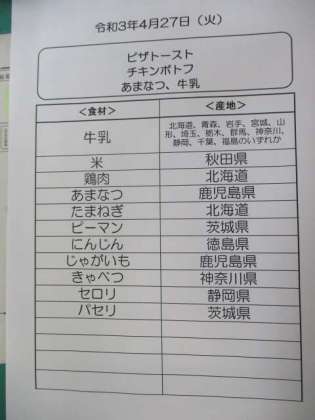 令和3年4月27日（火）
ピザトースト
チキンポトフ
あまなつ、牛乳
＜食材＞ ＜産地＞
牛乳 北海道、青森、岩手、宮城、山
形、埼玉、栃木、群馬、神奈川、
静岡、千葉、福島のいずれか
米 秋田県
鶏肉 北海道
あまなつ 鹿児島県
たまねぎ 北海道
ピーマン 茨城県
にんじん 徳島県
じゃがいも 鹿児島県
きゃべつ 神奈川県
セロリ 静岡県
パセリ 茨城県